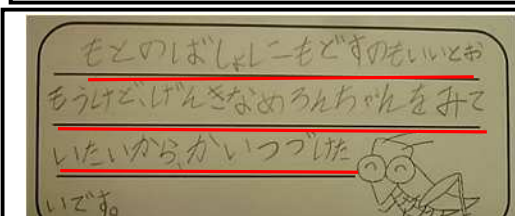 もとのばしょにもどすのもいいとお
もうけど、げんきなめろんちゃんをみて
いたいから、かいつづけた
いです。